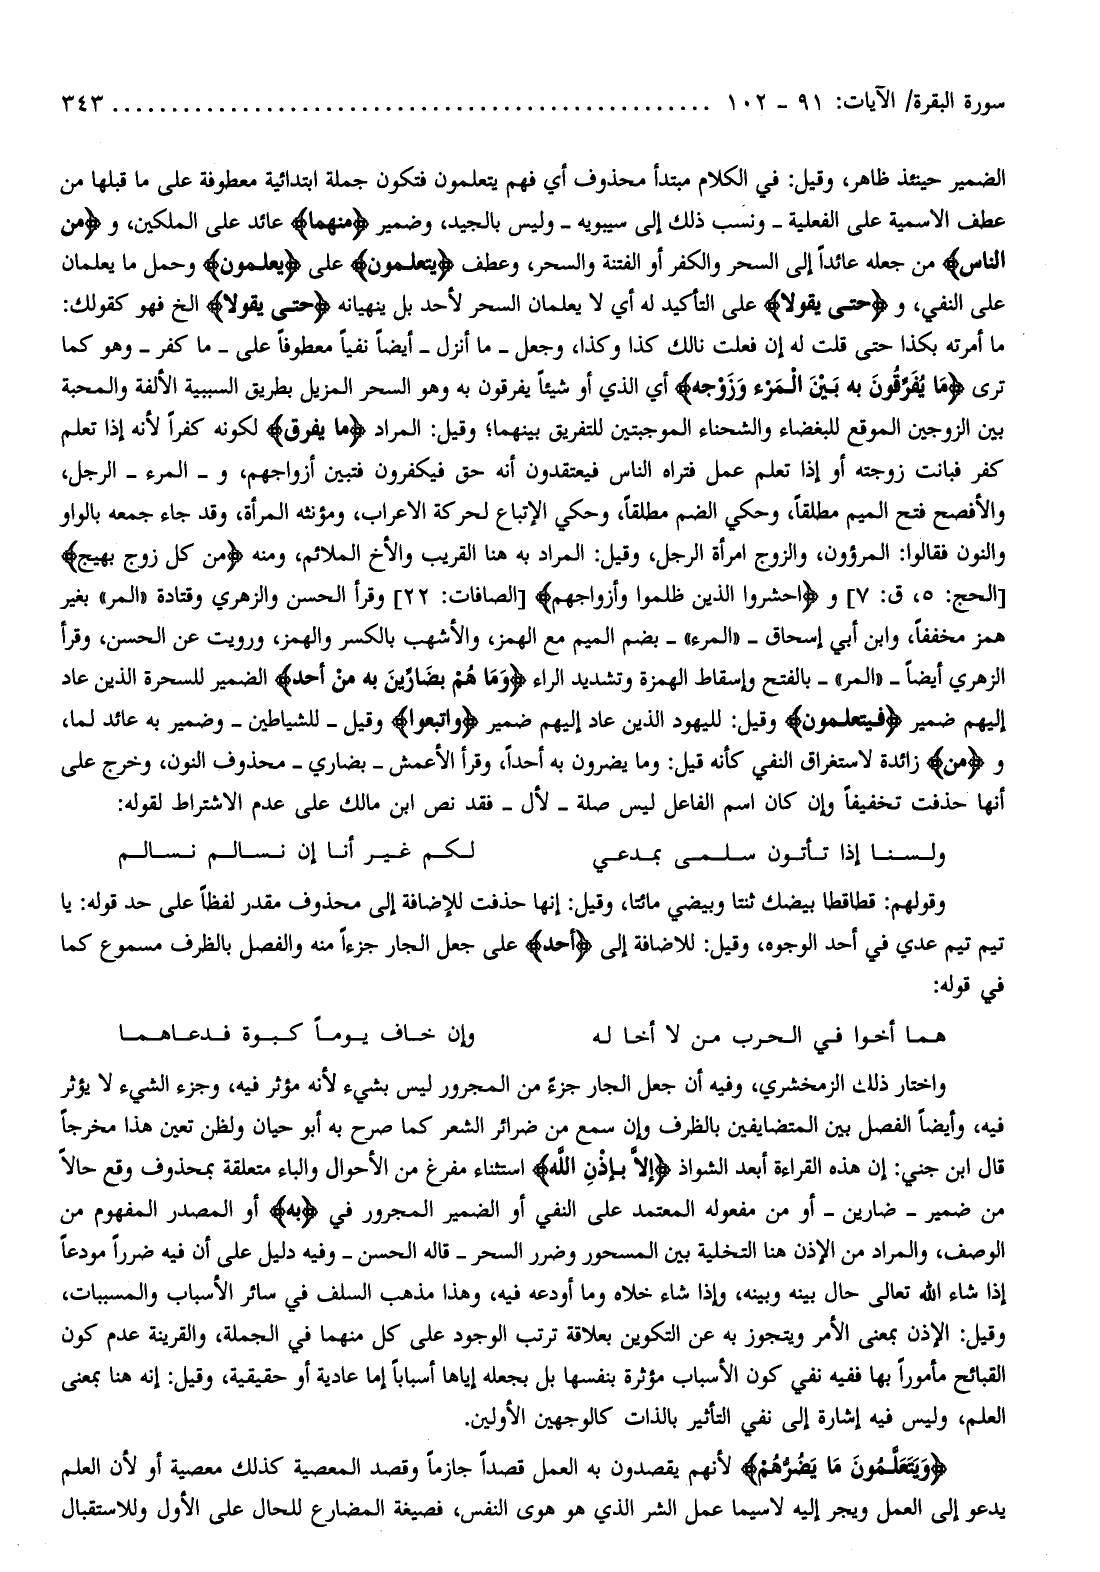 سورة البقرة/ الآيات: ٩١ - ١٠٢ ................................................... ٣٤٣
الضمير حينئذ ظاهر، وقيل: في الكلام مبتدأ محذوف أي فهم يتعلمون فتكون جملة ابتدائية معطوفة على ما قبلها من
عطف الاسمية على الفعلية ـ ونسب ذلك إلى سيبويه ـ وليس بالجيد، وضمير ﴿منهما﴾ عائد على الملكين، و ﴿من
الناس﴾ من جعله عائداً إلى السحر والكفر أو الفتنة والسحر، وعطف ﴿يتعلمون﴾ على ﴿يعلمون﴾ وحمل ما يعلمان
على النفي، و ﴿حتى يقولا﴾ على التأكيد له أي لا يعلمان السحر لأحد بل ينهيانه ﴿حتى يقولا﴾ الخ فهو كقولك:
ما أمرته بكذا حتى قلت له إن فعلت نالك كذا وكذا، وجعل ـ ما أنزل ـ أيضاً نفياً معطوفاً على ـ ما كفر ـ وهو كما
ترى ﴿مَا يُفَرِّقُونَ به بَيْنَ الْمَرْء وَزَوْجه﴾ أي الذي أو شيئاً يفرقون به وهو السحر المزيل بطريق السببية الألفة والمحبة
بين الزوجين الموقع للبغضاء والشحناء الموجبتين للتفريق بينهما؛ وقيل: المراد ﴿ما يفرق﴾ لكونه كفراً لأنه إذا تعلم
كفر فبانت زوجته أو إذا تعلم عمل فتراه الناس فيعتقدون أنه حق فيكفرون فتبين أزواجهم، و ـ المرء ـ الرجل،
والأفصح فتح الميم مطلقاً، وحكي الضم مطلقاً، وحكي الإتباع لحركة الاعراب، ومؤنثه المرأة، وقد جاء جمعه بالواو
والنون فقالوا: المرؤون، والزوج امرأة الرجل، وقيل: المراد به هنا القريب والأخ الملائم، ومنه ﴿من كل زوج بهيج﴾
[الحج: ٥، ق: ٧] و ﴿احشروا الذين ظلموا وأزواجهم﴾ [الصافات: ٢٢] وقرأ الحسن والزهري وقتادة «المر» بغير
همز مخففاً، وابن أبي إسحاق ـ «المرء» ـ بضم الميم مع الهمز، والأشهب بالكسر والهمز، ورويت عن الحسن، وقرأ
الزهري أيضاً ـ «المر» ـ بالفتح وإسقاط الهمزة وتشديد الراء ﴿وَمَا هُمْ بضَارِّينَ به منْ أحد﴾ الضمير للسحرة الذين عاد
إليهم ضمير ﴿فيتعلمون﴾ وقيل: لليهود الذين عاد إليهم ضمير ﴿واتبعوا﴾ وقيل ـ للشياطين ـ وضمير به عائد لما،
و ﴿من﴾ زائدة لاستغراق النفي كأنه قيل: وما يضرون به أحداً، وقرأ الأعمش ـ بضاري ـ محذوف النون، وخرج على
أنها حذفت تخفيفاً وإن كان اسم الفاعل ليس صلة ـ لأل ـ فقد نص ابن مالك على عدم الاشتراط لقوله:
ولسنا إذا تأتون سلمى بمدعي لكم غير أنا إن نسالم نسالم
وقولهم: قطاقطا بيضك ثنتا وبيضي مائتا، وقيل: إنها حذفت للإضافة إلى محذوف مقدر لفظاً على حد قوله: يا
تيم تيم عدي في أحد الوجوه، وقيل: للاضافة إلى ﴿أحد﴾ على جعل الجار جزءاً منه والفصل بالظرف مسموع كما
في قوله:
هما أخوا في الحرب من لا أخا له وإن خاف يوماً كبوة فدعاهما
واختار ذلك الزمخشري، وفيه أن جعل الجار جزءً من المجرور ليس بشيء لأنه مؤثر فيه، وجزء الشيء لا يؤثر
فيه، وأيضاً الفصل بين المتضايفين بالظرف وإن سمع من ضرائر الشعر كما صرح به أبو حيان ولظن تعين هذا مخرجاً
قال ابن جني: إن هذه القراءة أبعد الشواذ ﴿إلاَّ بإذْنِ اللَّه﴾ استثناء مفرغ من الأحوال والباء متعلقة بمحذوف وقع حالاً
من ضمير ـ ضارين ـ أو من مفعوله المعتمد على النفي أو الضمير المجرور في ﴿به﴾ أو المصدر المفهوم من
الوصف، والمراد من الإذن هنا التخلية بين المسحور وضرر السحر ـ قاله الحسن ـ وفيه دليل على أن فيه ضرراً مودعاً
إذا شاء الله تعالى حال بينه وبينه، وإذا شاء خلاه وما أودعه فيه، وهذا مذهب السلف في سائر الأسباب والمسببات،
وقيل: الإذن بمعنى الأمر ويتجوز به عن التكوين بعلاقة ترتب الوجود على كل منهما في الجملة، والقرينة عدم كون
القبائح مأموراً بها ففيه نفي كون الأسباب مؤثرة بنفسها بل بجعله إياها أسباباً إما عادية أو حقيقية، وقيل: إنه هنا بمعنى
العلم، وليس فيه إشارة إلى نفي التأثير بالذات كالوجهين الأولين.
﴿وَيَتَعَلَّمُونَ مَا يَضُرُّهُمْ﴾ لأنهم يقصدون به العمل قصداً جازماً وقصد المعصية كذلك معصية أو لأن العلم
يدعو إلى العمل ويجر إليه لاسيما عمل الشر الذي هو هوى النفس، فصيغة المضارع للحال على الأول وللاستقبال